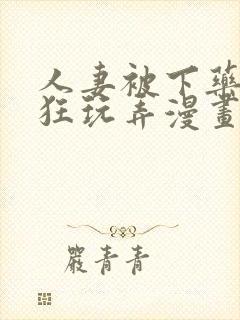 人妻被下藥
狂玩弄漫畫
嚴青青